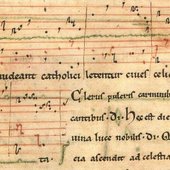 udeant catholici letentur ciues celi
Clerus pulcris carminib
cantibus · d: Hec est die
uina luce nobilis · d: Q
ta cia ascendit ad celestia